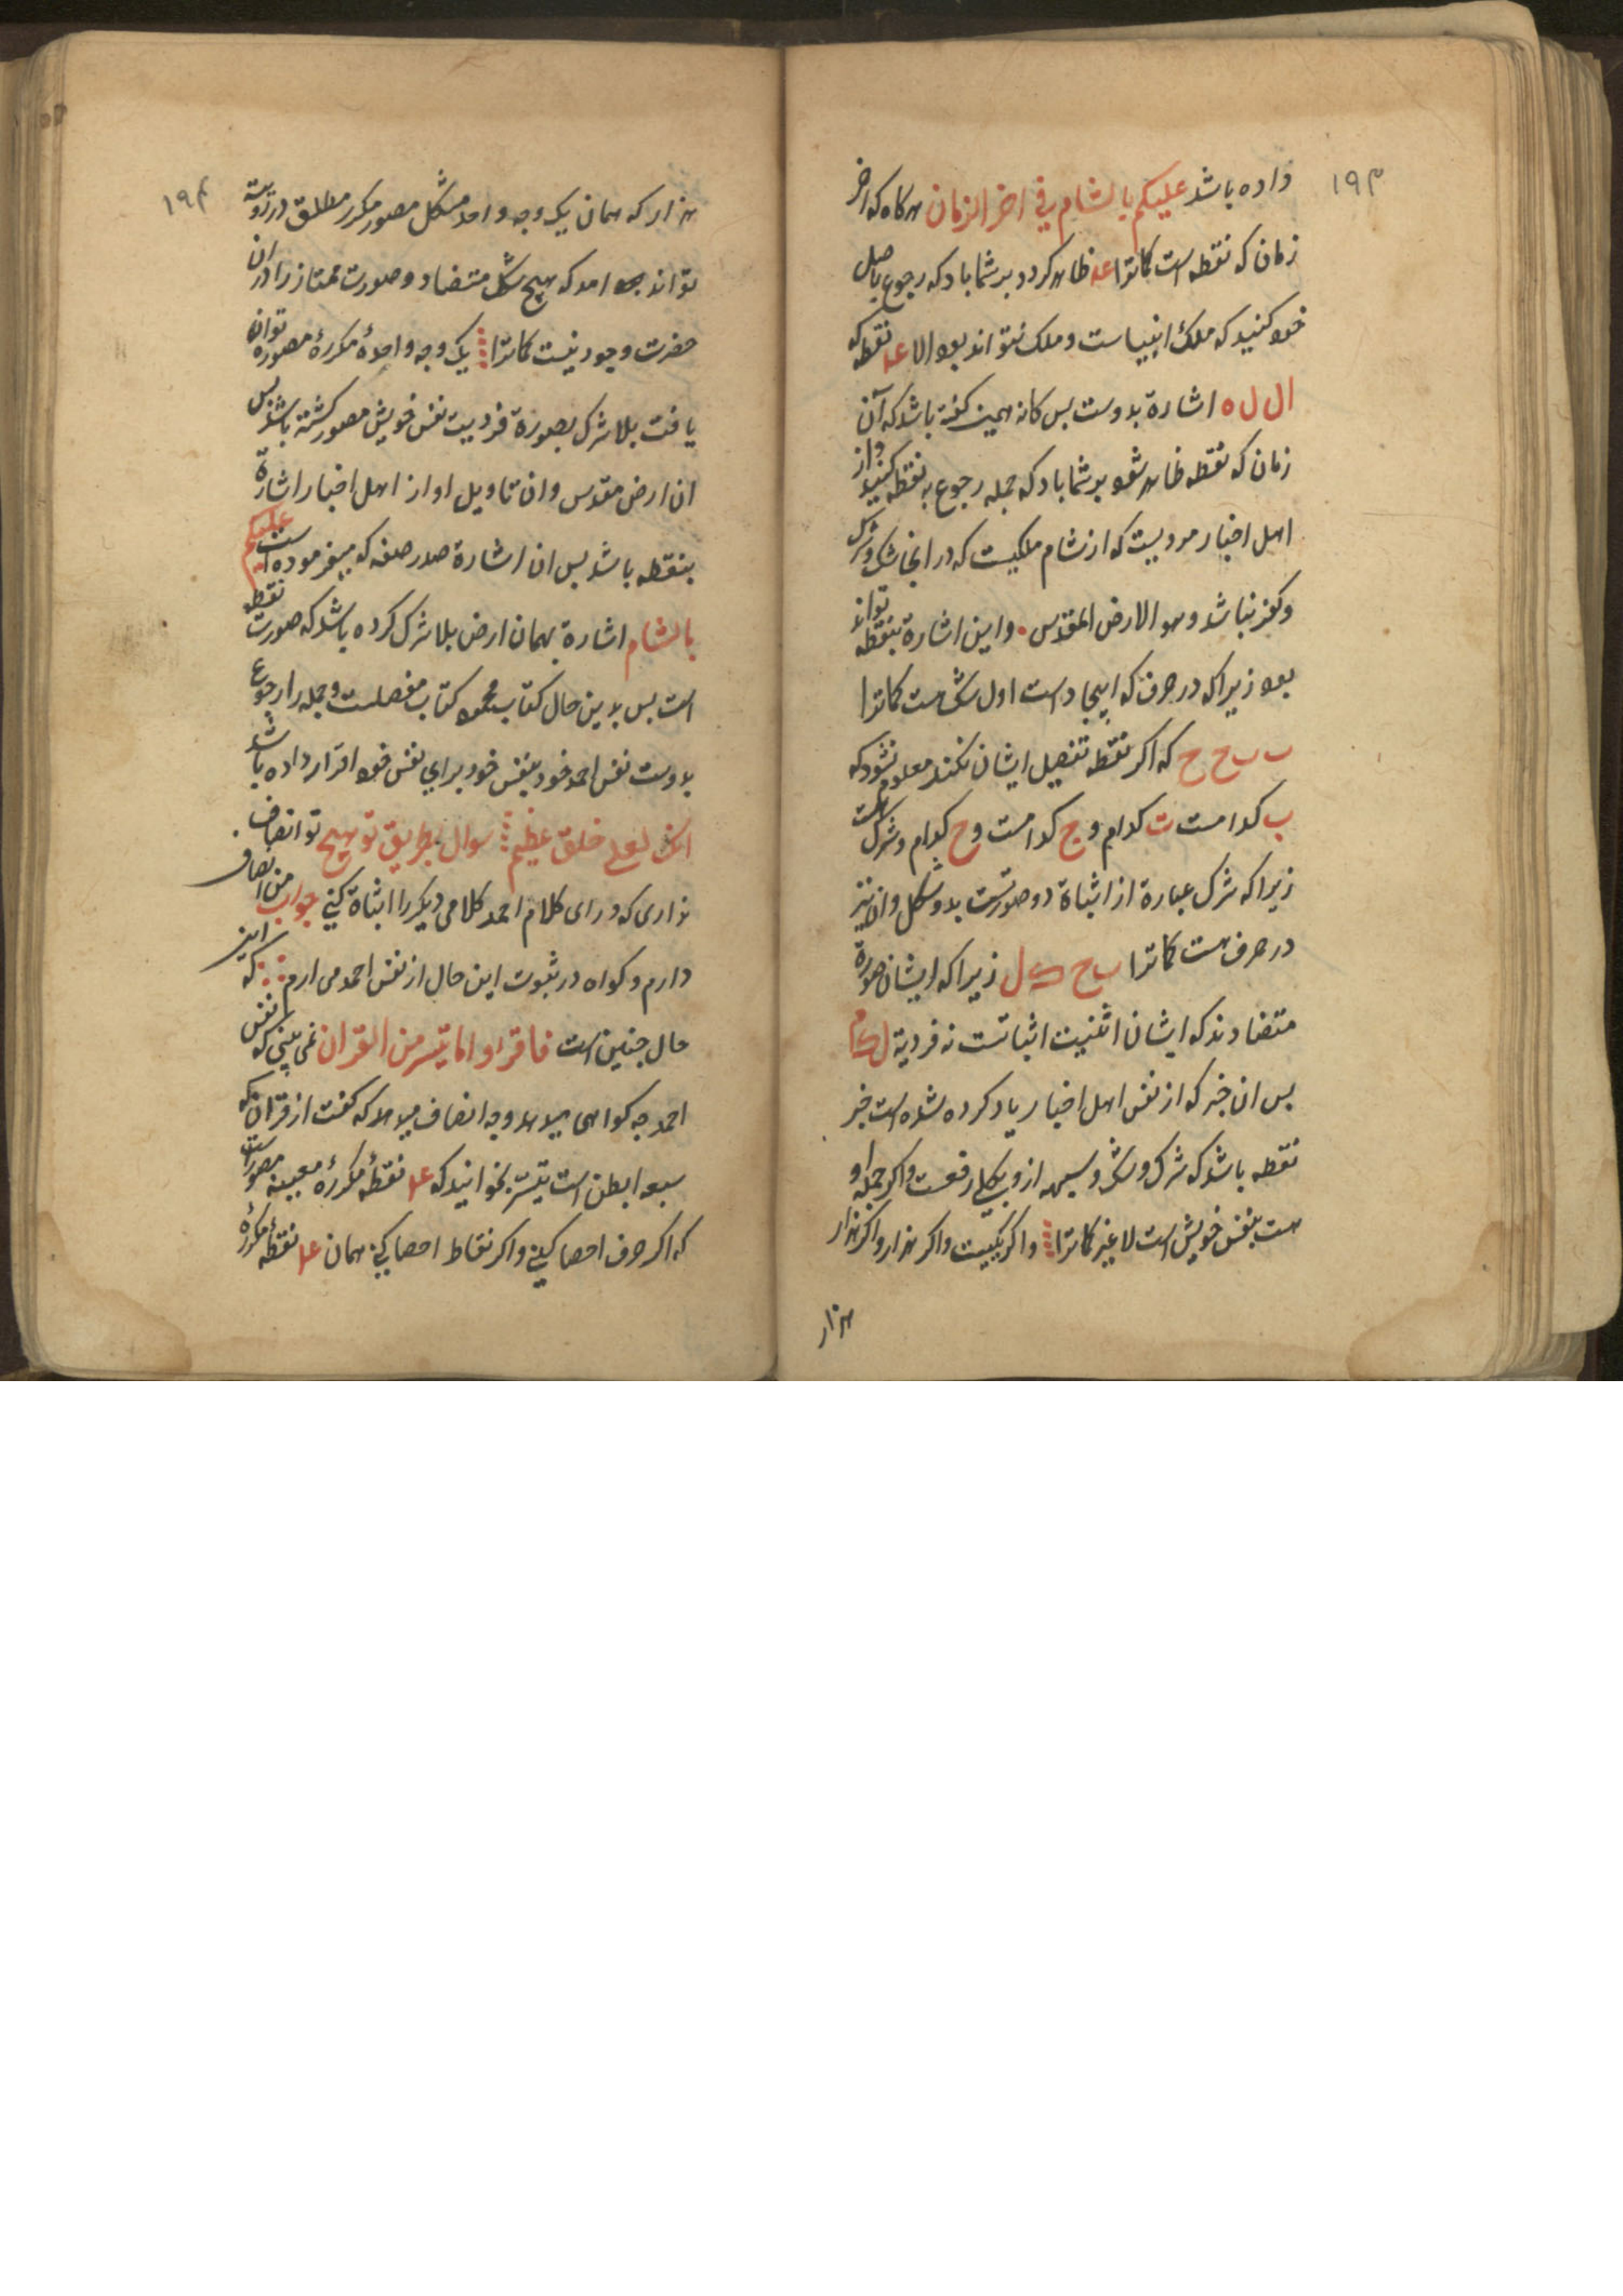 ١٩٣
داده باشد علیکم بالشام فی اخر الزمان هرکاه که اخر
زمان که نقطه است کماترا عہ ظاهر کردد بر شما باد که رجوع باصل
خود کنید که ملک انبیاست و ملک نتواند بود الا نقطه که
ال ل ه اشارة بدوست بس کانه همین کفته باشد که آن
زمان که نقطه ظاهر شود بر شما باد که جمله رجوع به نقطه کنید و از
اهل اخبار مرویست که از شام ملکیت که در انجا شک و شرک
و کفر نباشد و هو الارض المقدس . و این اشارة بنقطه تواند
بود زیرا که در حرف که ایجاد است اول شک هست کماترا
ب ب ح ح که اکر نقطه تفصیل ایشان نکند معلوم نشود که
ب کدامست ت کدام و ج کدامست و ح کدام و شرک هست
زیرا که شرک عبارة از اثباة دو صورتست بدو شکل و ان نیز
در حرف هست کماترا ب ح ک ل زیرا که ایشان صورة
متضادند که ایشان اثنیت اثباتست نه فردیة
بس ان خبر که از نفس اهل اخبار یاد کرده شده است خبر
نقطه باشد که شرک و شک و سیهه از و بکلی رفعست و اکر جمله او
هست بنفس خویش است لا غیر کماترا واکر یکیست واکر هزار واکر هزار
هزار
١٩۴
هزار که همان یک وجه واحد مشکل مصور مکرر مطلق در رویه
تواند امد که هیچ شکل متضاد و صورت ممتاز را در ان
حضرت وجود نیست کماترا یک وجه واحدهٔ مکررهٔ مصوره توان
یافت بلا شرک بصورة فردیت نفس خویش مصور کشته باشد بس
ان ارض مقدس و ان تاویل او از اهل اخبار اشارة
بنقطه باشد بس ان اشارة صدر صفه که میفرموده است علیکم
بالشام اشارة بهمان ارض بلا شرک کرده باشد که صورت نقطه
است بس بدین حال کتاب محمود کتاب مفصلست و جمله را رجوع
بدوست نفس احمد خود بنفس خود برای نفس خود اقرار داده باشد
انک لعلی خلق عظیم سوال بطریق توبیح تو انصاف
نداری که ورای کلام احمد کلامی دیکر را اثباة کنی جواب من انصاف
دارم و کواه در ثبوت این حال از نفس احمد می ارم که این
حال جنین است فاقراوا ما تیسر من القران نمی بینی که نفس
احمد جه کواهی میدهد وجه انصاف میدهد که کفت از قران که
سبعه ابطن است تیسر بخوانید که نقطهٔ مکررهٔ معینه مصور است
که اکر حرف احصا کنی و اکر نقاط احصا کنی همان نقطهٔ مکررهٔ